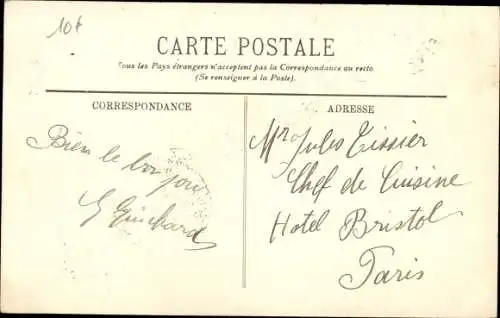 10f
CARTE POSTALE
Tous les Pays étrangers n'acceptent pas la Correspondance au recto
(Se renseigner à la Poste).
CORRESPONDANCE
Bien le bonjour
G Guichard
ADRESSE
Mr Jules Tissier
Chef de Cuisine
Hotel Bristol
Paris